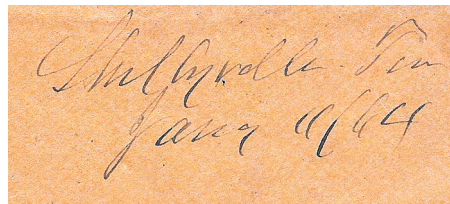 Shelbyville. Ten
Jany 11/64